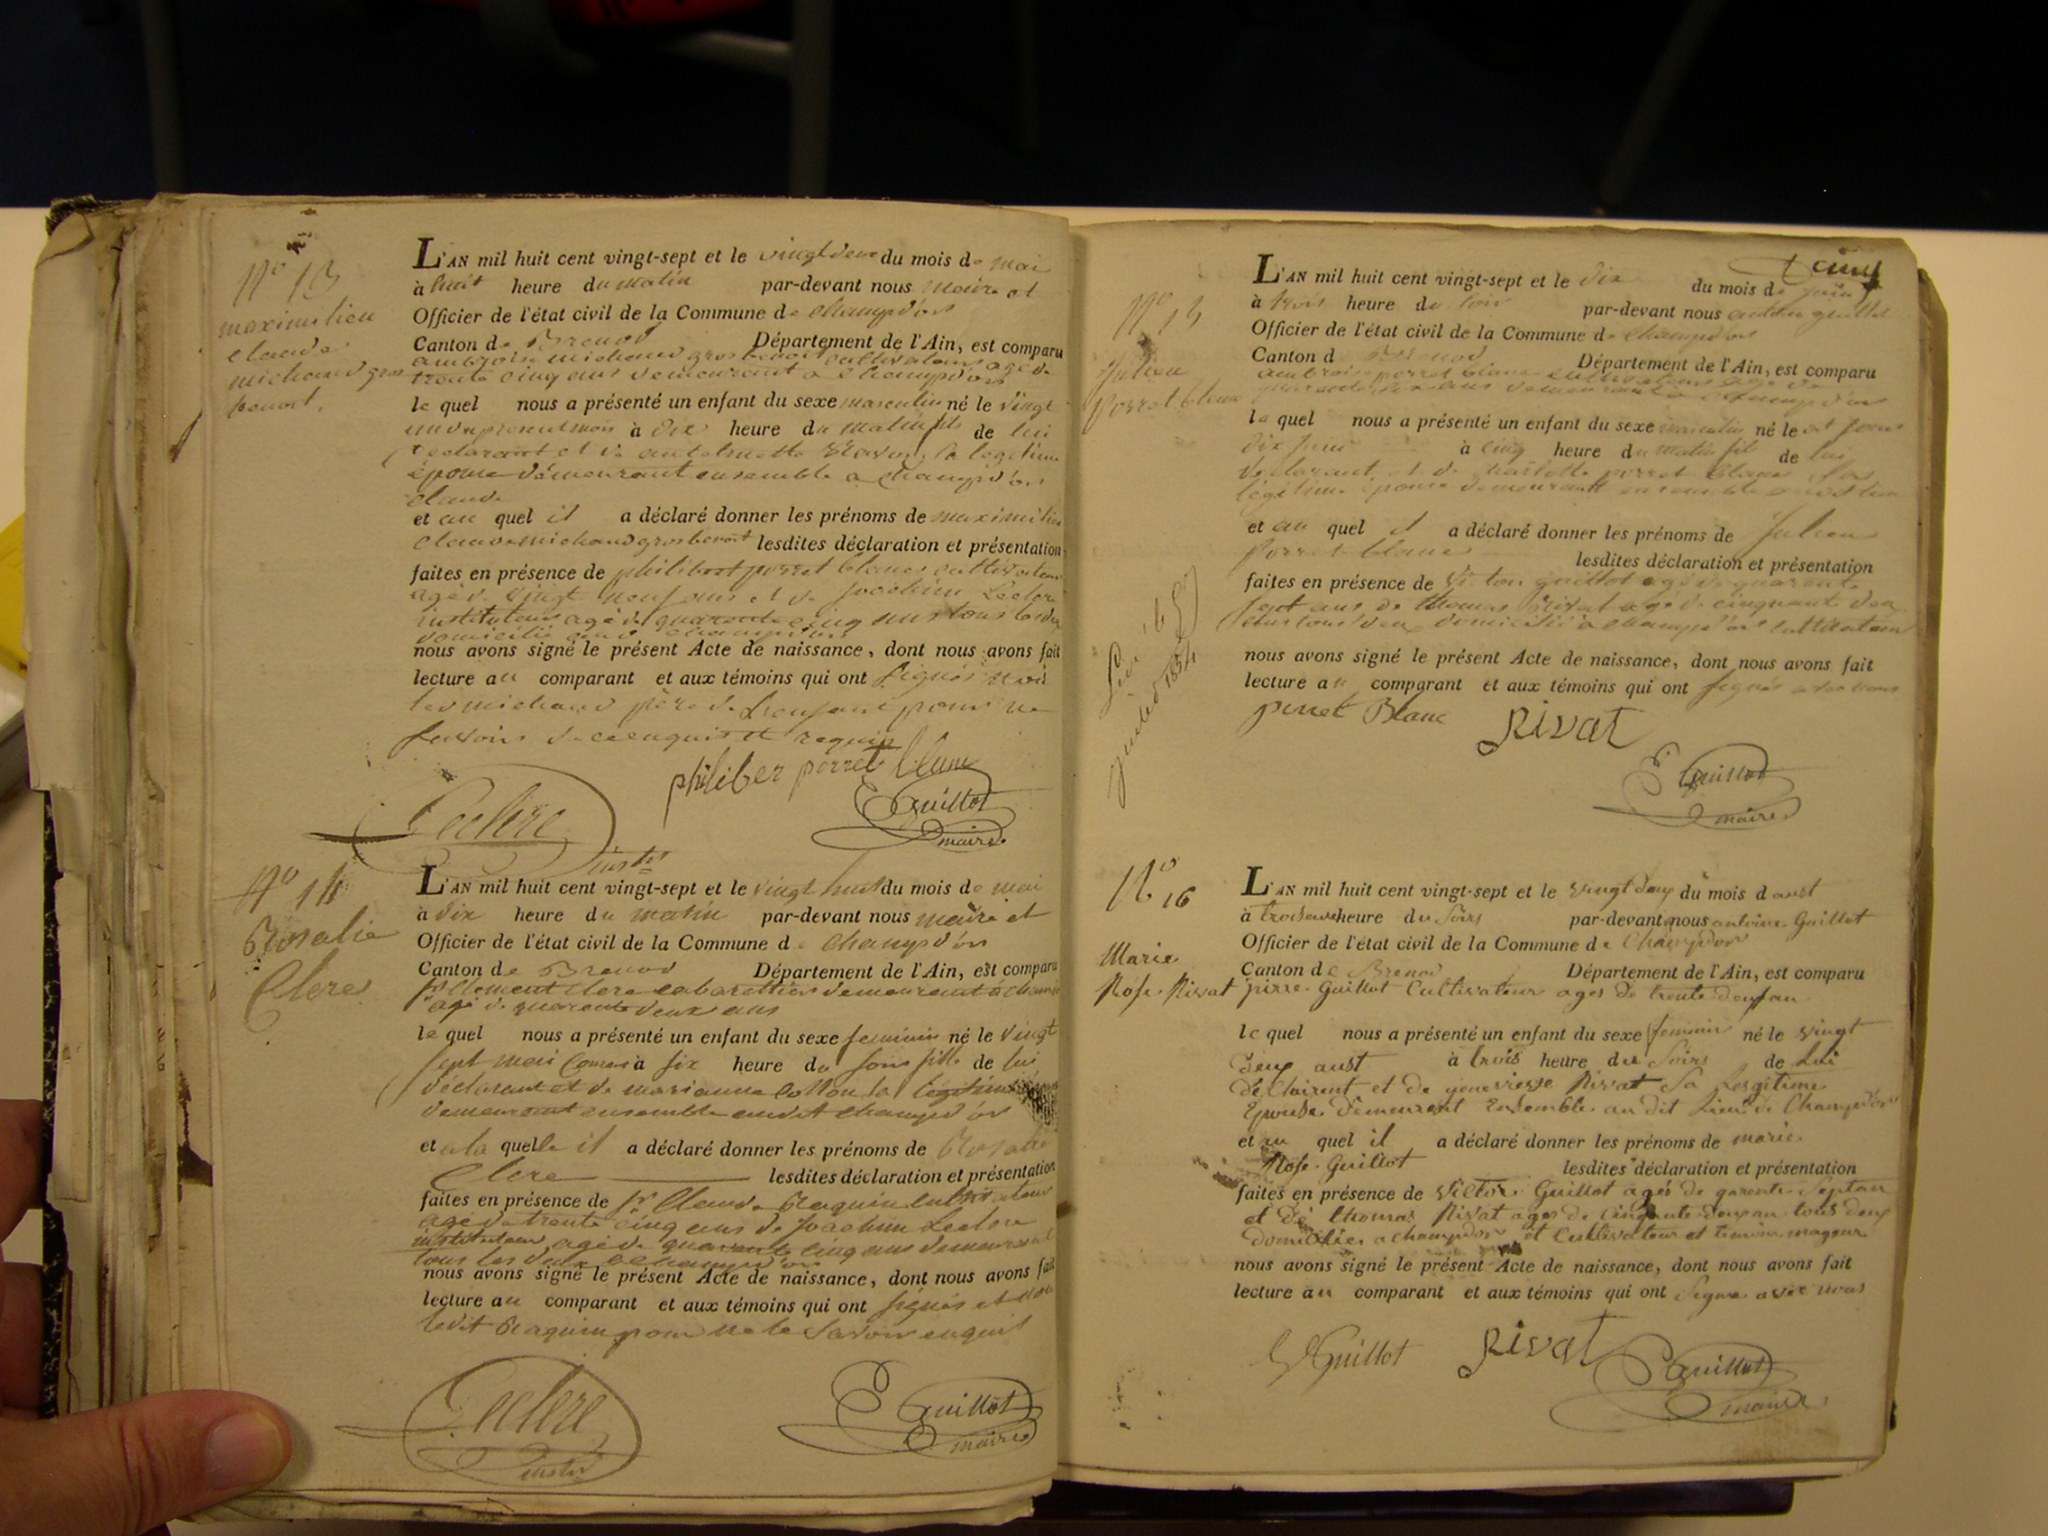 N° 13
maximilien
claude
michaud gros
benoit.
L'AN mil huit cent vingt-sept et le vingt deux du mois de mai
à huit heure du matin par-devant nous maire et
Officier de l'état civil de la Commune de champd'or
Canton de Brenod Département de l'Ain, est comparu
ambroise michaud gros benoit cultivateur agé de
trente cinq ans demeurant a champd'or
le quel nous a présenté un enfant du sexe masculin né le vingt
un du present mois à dix heure du matin fils de lui
declarant et de antelmette sa legitime
épouse demeurant ensemble a champd'or
claude
et au quel il a déclaré donner les prénoms de maximilien
claude michaud gros benoit lesdites déclaration et présentation
faites en présence de philibert perret blanc cultivateur
agé de vingt neuf ans et de joachim Leclerc
instituteur agé de quarante cinq ans tous les deux
domicilié champd'or
nous avons signé le présent Acte de naissance, dont nous avons fait
lecture au comparant et aux témoins qui ont signés non
le michaud père de L'enfant pour ne
savoir de ce enquis et requis
philiber perret blanc
Leclerc
E Guillot
maire
N° 14
Rosalie
Clerc
L'AN mil huit cent vingt-sept et le vingt huit du mois de mai
à dix heure du matin par-devant nous maire et
Officier de l'état civil de la Commune de champd'or
Canton de Brenod Département de l'Ain, est comparu
clement clerc cabarettier demeurant a champd'or
agé de quarante deux ans
le quel nous a présenté un enfant du sexe feminin né le vingt
sept mai à six heure du soir fille de lui
déclarant et de marianne la légitime
demeurant ensemble audit champd'or
et a la quelle il a déclaré donner les prénoms de Rosalie
Clerc lesdites déclaration et présentation
faites en présence de Claude cultivateur
agé de trente cinq ans de Joachim Leclerc
instituteur agé de quarante cinq ans demeurant
tous les deux a champd'or
nous avons signé le présent Acte de naissance, dont nous avons fait
lecture au comparant et aux témoins qui ont signés et non
ledit pour ne le savoir enquis
Leclerc
E Guillot
maire
N° 15
Julien
perret blanc
L'AN mil huit cent vingt-sept et le dix du mois de juin
à trois heure du soir par-devant nous guillot
Officier de l'état civil de la Commune de champd'or
Canton d Brenod Département de l'Ain, est comparu
ambroise perret blanc cultivateur agé de
ans demeurant a champd'or
le quel nous a présenté un enfant du sexe masculin né le
dix juin à cinq heure du matin fils de lui
declarant et de perret blanc sa
légitime épouse demeurant ensemble
et au quel il a déclaré donner les prénoms de Julien
perret blanc lesdites déclaration et présentation
faites en présence de Victor guillot agé de quarante
sept ans de thomas Rivat agé de cinquante deux
ans tous deux domicilié a champd'or cultivateur
nous avons signé le présent Acte de naissance, dont nous avons fait
lecture au comparant et aux témoins qui ont signés avec nous
perret Blanc
Rivat
E Guillot
maire
N° 16
Marie
Rose Rivat
L'AN mil huit cent vingt-sept et le vingt deux du mois d aust
à trois heure du soirs par-devant nous antoine Guillot
Officier de l'état civil de la Commune de Champdor
Canton de Brenod Département de l'Ain, est comparu
pierre Guillot Cultivateur agés de trente deux an
le quel nous a présenté un enfant du sexe feminin né le vingt
deux aust à trois heure du soirs de Lui
déClairent et de genevieve Rivat Sa Legitime
Epouse demeurent Ensemble au dit Lieu de Champdor
et au quel il a déclaré donner les prénoms de marie
Rose Guillot lesdites déclaration et présentation
faites en présence de Victor Guillot agés de garente Septan
et de thomas Rivat ages de Cinquante deux an tous deux
domicilie a champdor et Cultivateur et temoins mageur
nous avons signé le présent Acte de naissance, dont nous avons fait
lecture au comparant et aux témoins qui ont Signe avec nous
Guillot
Rivat
E Guillot
maire